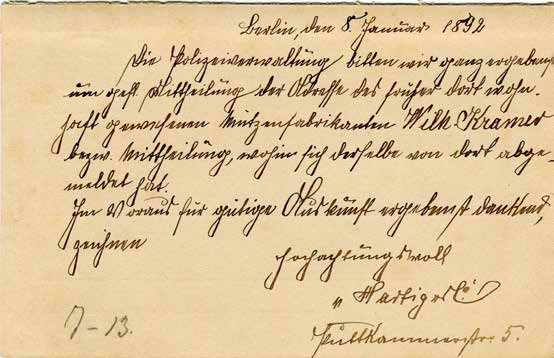 Berlin, den 8. Januar 1892
Die Polizeiverwaltung bitten wir ganz ergebenst
um gefl. Mittheilung der Adresse des früher dort wohn-
haft gewesenen Mützenfabrikanten Wilh. Kramer
bezw. Mittheilung, wohin sich derselbe von dort abge-
meldet hat.
Im Voraus für gütige Auskunft ergebenst dankend,
zeichnen
Hochachtungsvoll
Puttkammerstr. 5.
7-13.